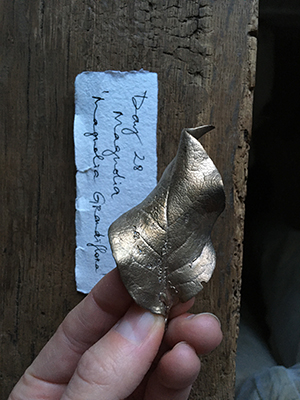 Day 28
Magnolia
'Magnolia Grandiflora'